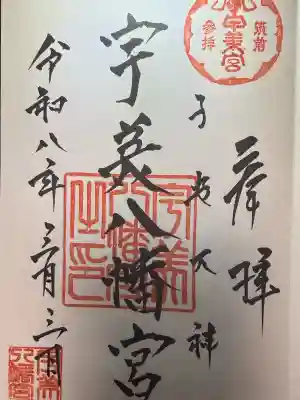 奉拝
筑前
宇美宮
参拝
子安大神
宇美八幡宮
宇美
八幡宮
之印
令和八年三月三日
宇美
八幡宮